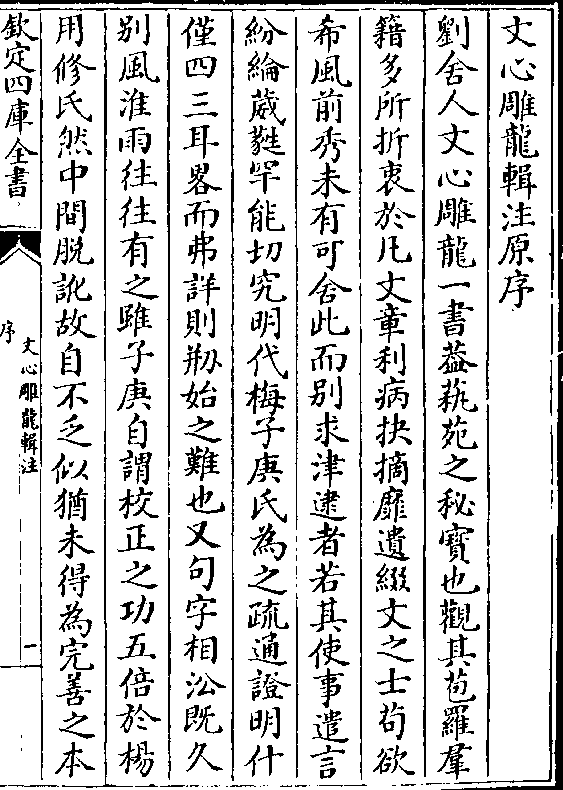 文心雕龍輯注原序
劉舍人文心雕龍一書葢蓺苑之秘寶也觀其苞羅羣
籍多所折衷於凡文章利病抉摘靡遺綴文之士茍欲
希風前秀未有可舍此而别求津逮者若其使事遣言
紛綸葳蕤罕能切究明代梅子庚氏為之疏通證明什
僅四三耳畧而弗詳則剏始之難也又句字相沿既久
别風淮雨往往有之雖子庚自謂校正之功五倍於楊
用修氏然中間脱訛故自不乏似猶未得為完善之本
欽定四庫全書
文心雕龍輯注
序
一